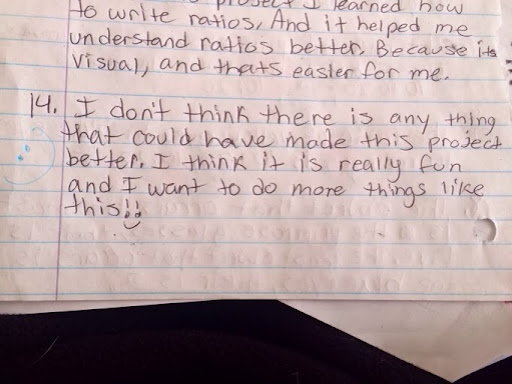 project I learned how
to write ratios, And it helped me
understand ratios better. Because its
visual, and thats easier for me.
14. I don't think there is any thing
that could have made this project
better. I think it is really fun
and I want to do more things like
this!!